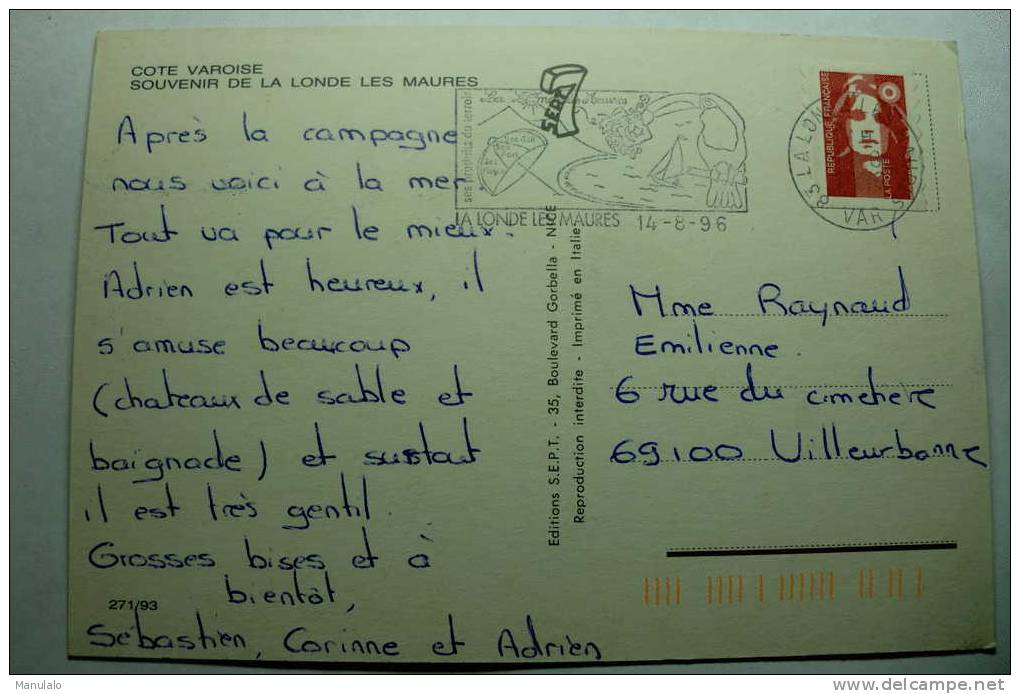 COTE VAROISE
SOUVENIR DE LA LONDE LES MAURES
Après la campagne
nous voici à la mer
Tout va pour le mieux.
Adrien est heureux, il
s'amuse beaucoup
(chateaux de sable et
baignade) et surtout
il est très gentil.
Grosses bises et à
bientôt,
Sébastien, Corinne et Adrien
271/93
ses produits du terroir
LA LONDE LES MAURES 14-8-96
SEPT
Editions S.E.P.T. - 35, Boulevard Gorbella - NICE
Reproduction interdite - Imprimé en Italie
REPUBLIQUE FRANÇAISE
LA POSTE
83 LA LON
VAR
Mme Raynaud
Emilienne.
6 rue du cimetière
69100 Villeurbanne
Manulalo
www.delcampe.net